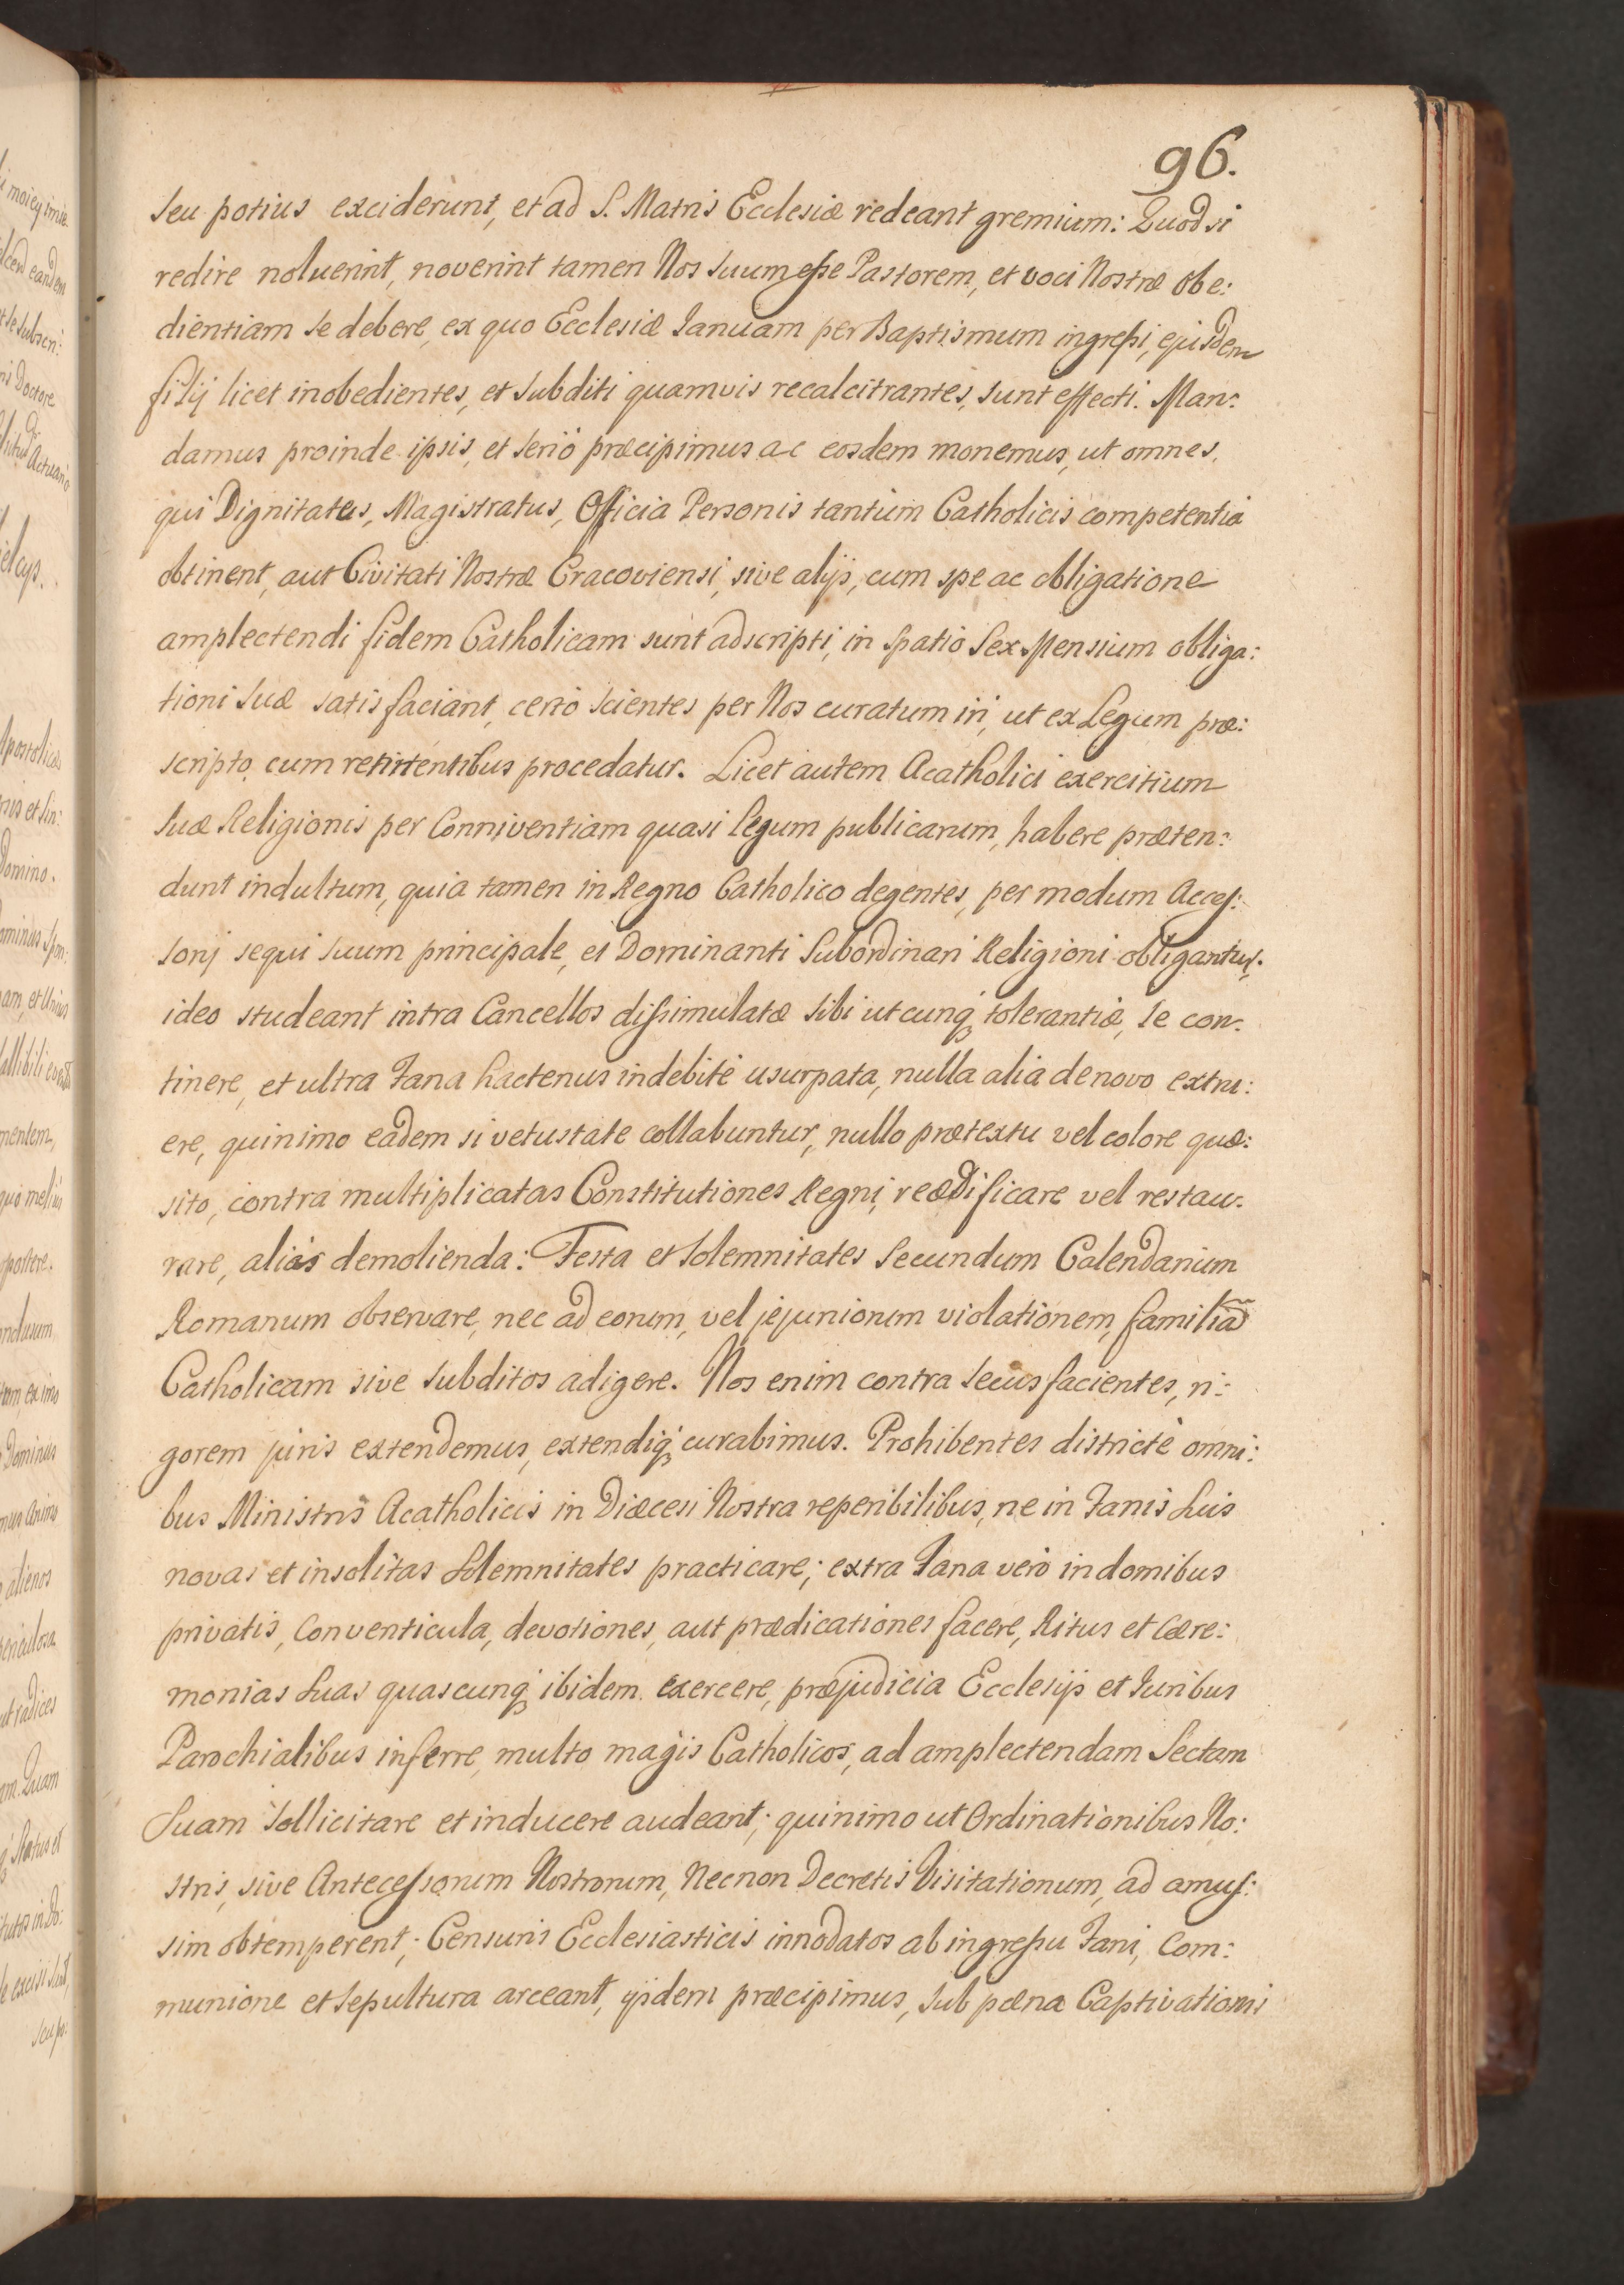 96.
seu potius exciderunt, et ad S. Matris Ecclesiæ redeant gremium: Quod si
redire noluerint, noverint tamen Nos suum eſse Pastorem, et voci Nostræ obe:
dientiam se debere, ex quo Ecclesiæ Januam per Baptismum ingreſsi, ejusdem
filij licet inobedientes, et subditi quamvis recalcitrantes, sunt effecti. Man:
damus proinde ipsis, et seriò præcipimus ac eosdem monemus, ut omnes,
qui Dignitates, Magistratus, Officia Personis tantùm Catholicis competentia
obtinent, aut Civitati Nostræ Cracoviensi, sive alijs, cum spe ac obligatione
amplectendi fidem Catholicam sunt adscripti, in spatio Sex Mensium obliga:
tioni suæ satisfaciant, certò scientes per Nos curatum iri, ut ex Legum præ:
scripto cum renitentibus procedatur. Licet autem Acatholici exercitium
suæ Religionis per Conniventiam quasi legum publicarum, habere præten:
dunt indultum, quia tamen in Regno Catholico degentes, per modum Acceſ:
sorij sequi suum principale, et Dominanti subordinari Religioni obligantur,
ideo studeant intra Cancellos diſsimulatæ sibi utcunq, tolerantiæ, se con:
tinere, et ultra Fana hactenus indebitè usurpata, nulla alia de novo extru:
ere, quinimo eadem si vetustate collabuntur, nullo prætextu vel colore quæ:
sito, contra multiplicatas Constitutiones Regni, reædificare vel restau:
rare, aliàs demolienda: Festa et solemnitates secundum Calendarium
Romanum observare, nec ad eorum, vel jejuniorum violationem, familiã
Catholicam sive subditos adigere. Nos enim contra secùs facientes, ri:
gorem juris extendemus, extendiq, curabimus. Prohibentes districtè omni:
bus Ministris Acatholicis in Diæcesi Nostra reperibilibus, ne in Fanis suis
novas et insolitas solemnitates practicare; extra Fana verò in domibus
privatis, Conventicula, devotiones, aut prædicationes facere, Ritus et Cære:
monias suas quascunq, ibidem exercere, præjudicia Ecclesijs et Juribus
Parochialibus inferre, multo magis Catholicos, ad amplectendam Sectam
Suam sollicitare et inducere audeant; quinimo ut Ordinationibus No:
stris, sive Anteceſsorum Nostrorum, Necnon Decretis Visitationum, ad amuſ:
sim obtemperent; Censuris Ecclesiasticis innodatos ab ingreſsu Fani, Com:
munione et sepultura arceant, ijsdem præcipimus, sub pæna Captivationis